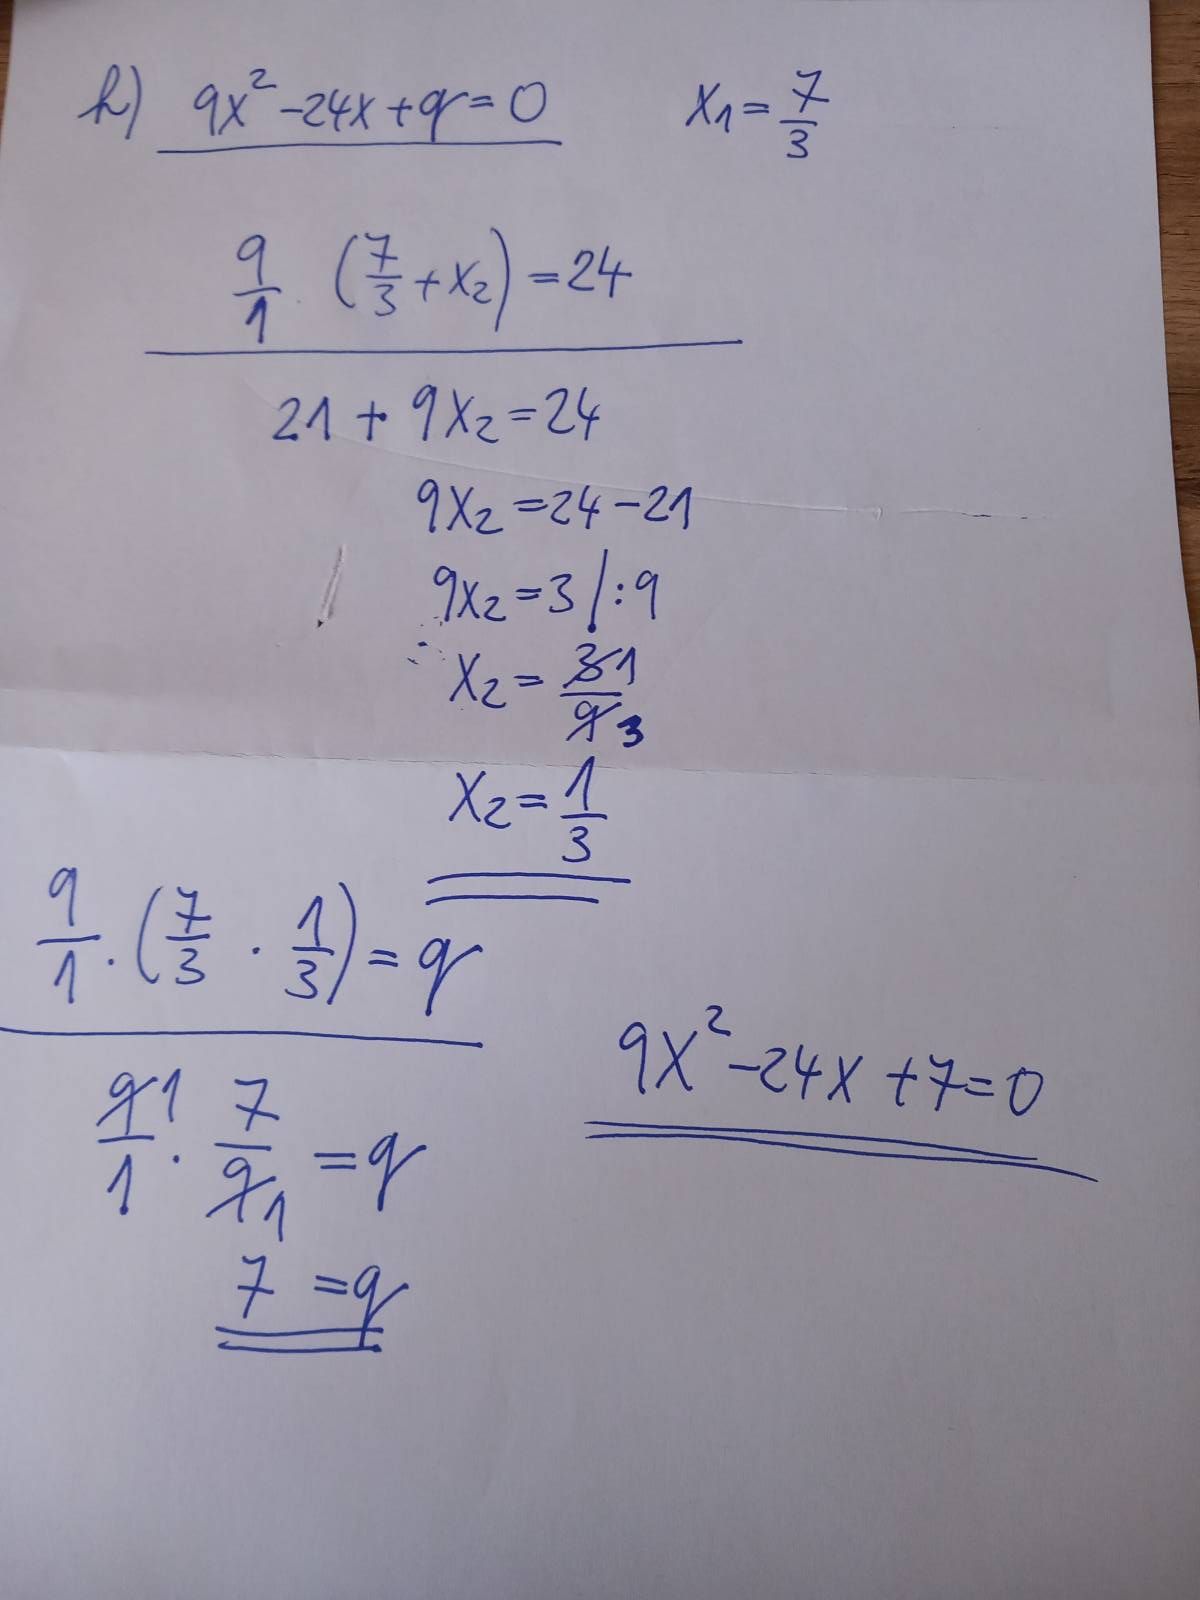 h) 9x² - 24x + q = 0    x₁ = 7/3
9/1 · (7/3 + x₂) = 24
21 + 9x₂ = 24
9x₂ = 24 - 21
9x₂ = 3 /:9
x₂ = 3̸1/9̸3
x₂ = 1/3
9/1 · (7/3 · 1/3) = q
9̸1/1 · 7/9̸1 = q
7 = q
9x² - 24x + 7 = 0